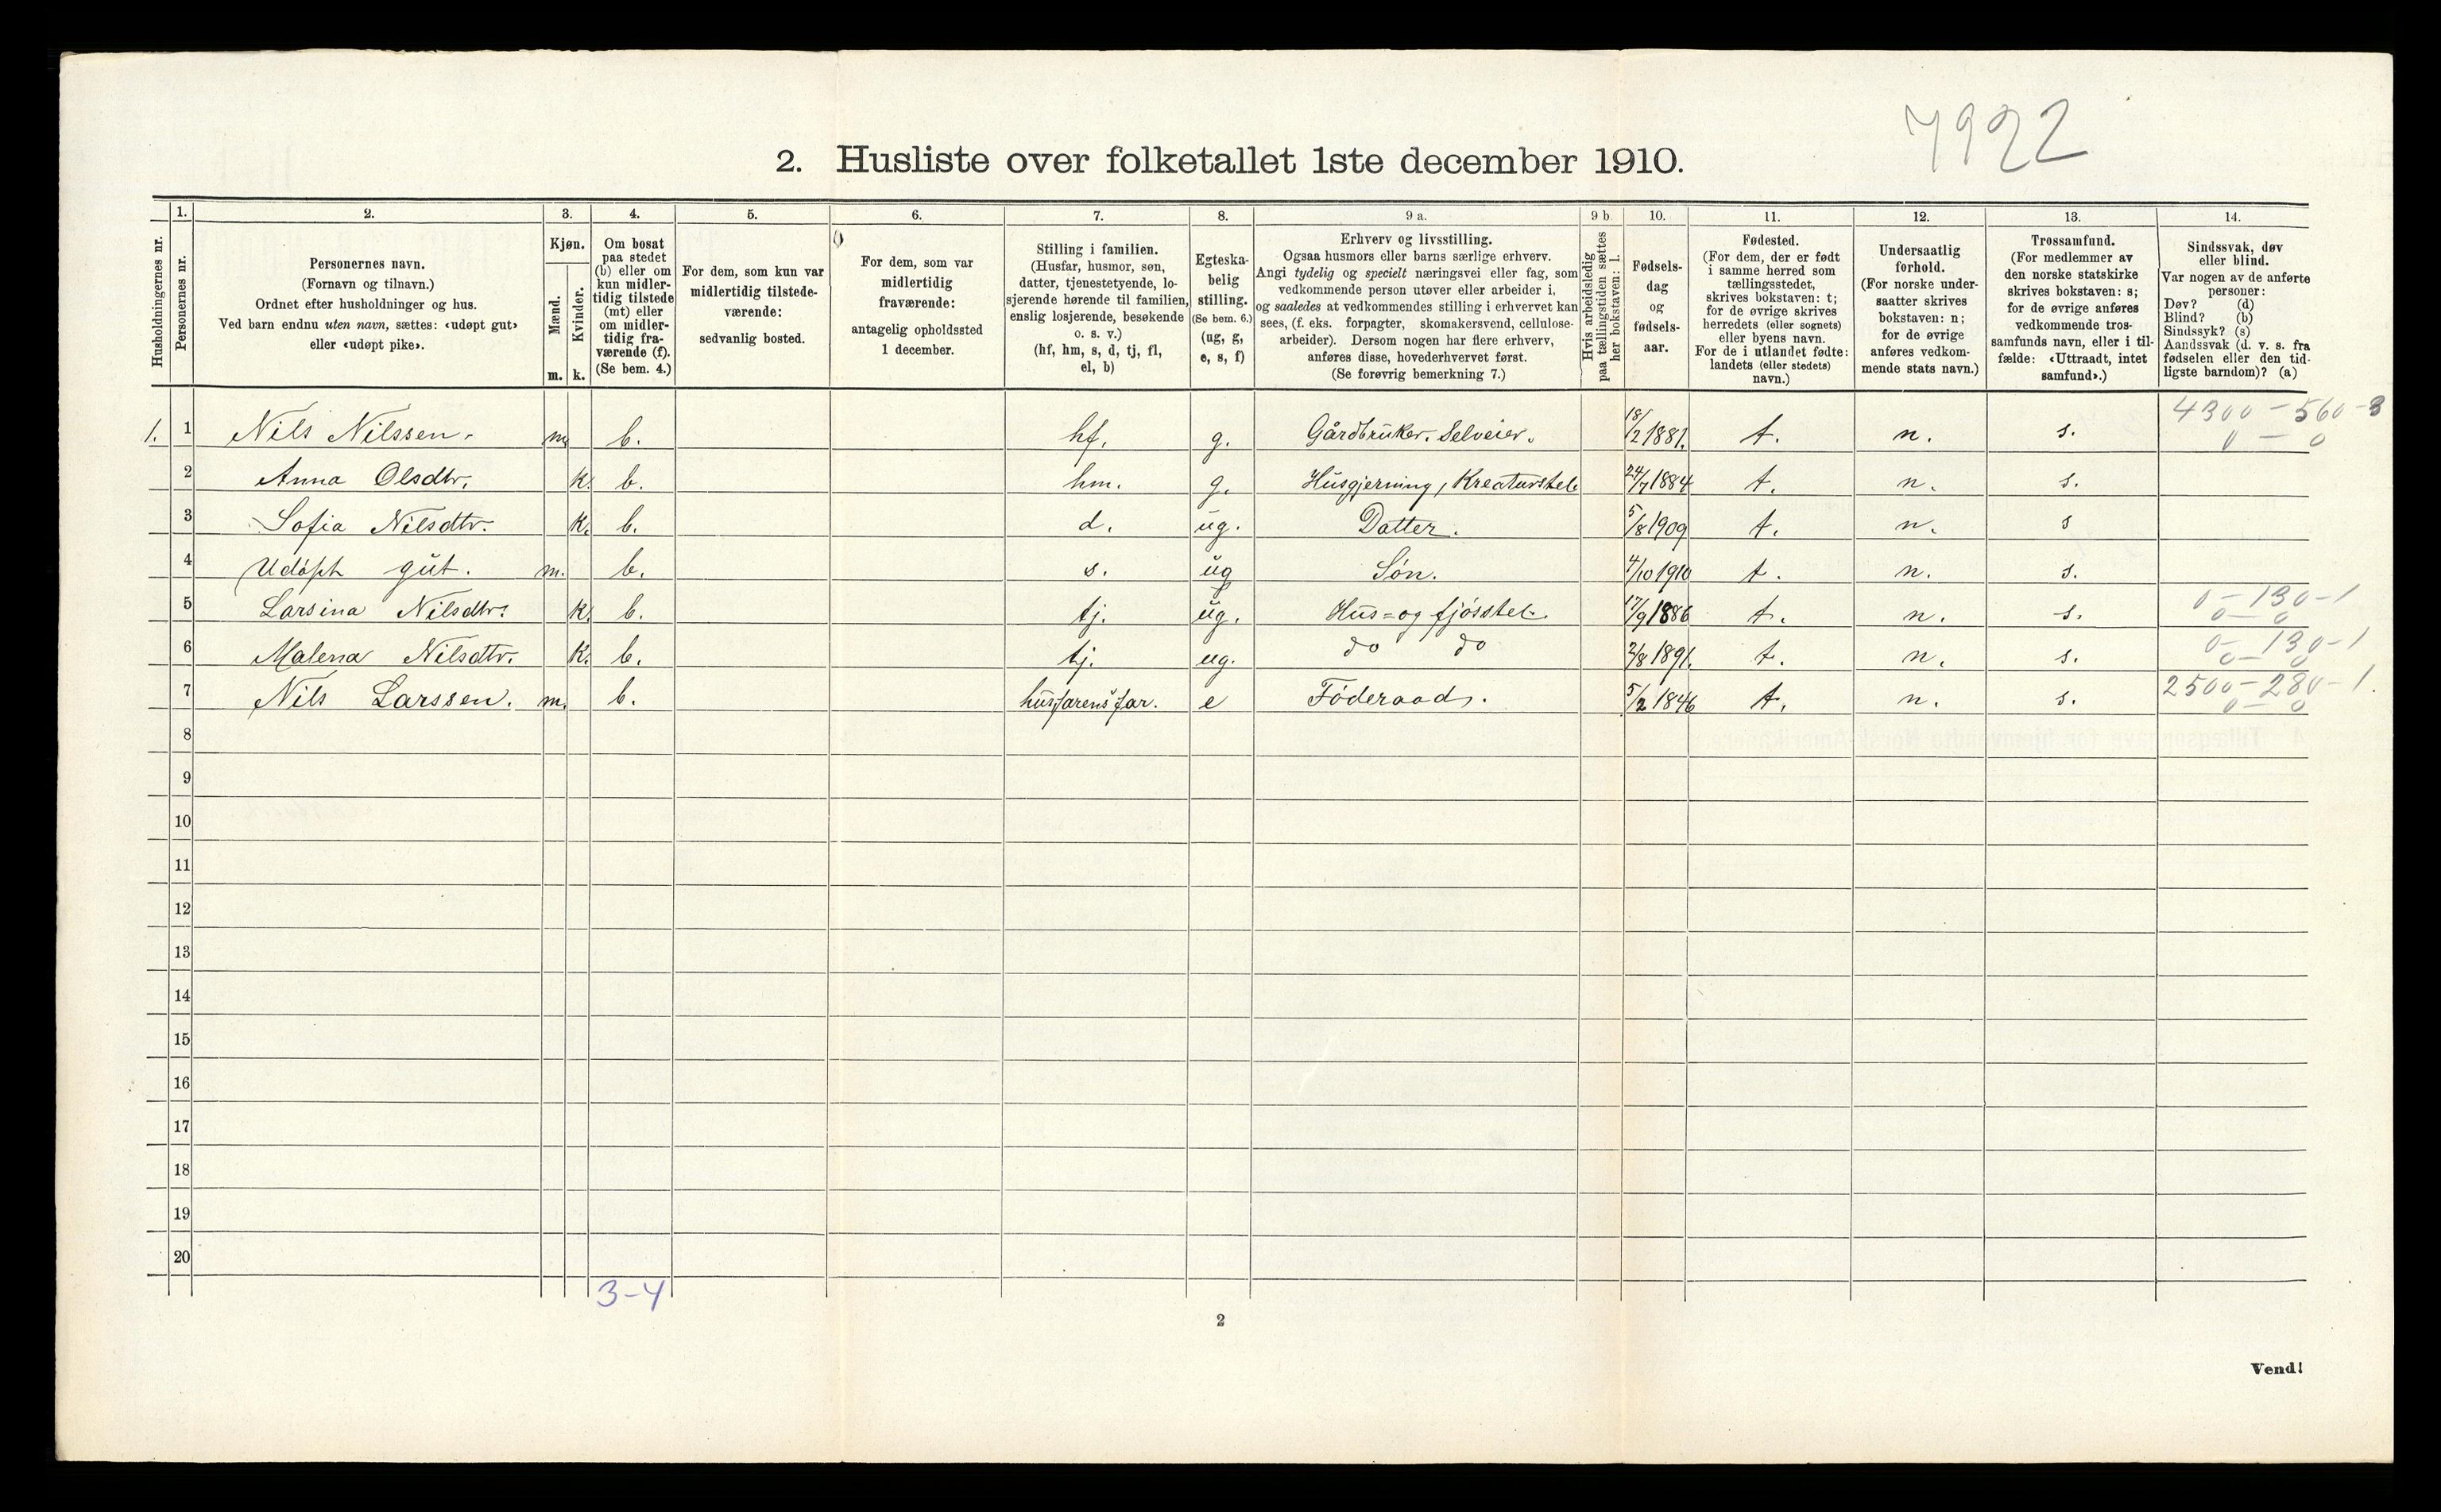 7922
2. Husliste over folketallet 1ste december 1910.
Husholdningernes nr.
1. Personernes nr.
2. Personernes navn.
(Fornavn og tilnavn.)
Ordnet efter husholdninger og hus.
Ved barn endnu uten navn, sættes: «udøpt gut»
eller «udøpt pike».
3. Kjøn.
Mænd. m.
Kvinder. k.
4. Om bosat
paa stedet
(b) eller om
kun midler-
tidig tilstede
(mt) eller
om midler-
tidig fra-
værende (f).
(Se bem. 4.)
5. For dem, som kun var
midlertidig tilstede-
værende:
sedvanlig bosted.
6. For dem, som var
midlertidig
fraværende:
antagelig opholdssted
1 december.
7. Stilling i familien.
(Husfar, husmor, søn,
datter, tjenestetyende, lo-
sjerende hørende til familien,
enslig losjerende, besøkende
o. s. v.)
(hf, hm, s, d, tj, fl,
el, b)
8. Egteska-
belig
stilling.
(Se bem. 6.)
(ug, g,
e, s, f)
9 a. Erhverv og livsstilling.
Ogsaa husmors eller barns særlige erhverv.
Angi tydelig og specielt næringsvei eller fag, som
vedkommende person utøver eller arbeider i,
og saaledes at vedkommendes stilling i erhvervet kan
sees, (f. eks. forpagter, skomakersvend, cellulose-
arbeider). Dersom nogen har flere erhverv,
anføres disse, hovederhvervet først.
(Se forøvrig bemerkning 7.)
9 b. Hvis arbeidsledig
paa tællingstiden sættes
her bokstaven: l.
10. Fødsels-
dag
og
fødsels-
aar.
11. Fødested.
(For dem, der er født
i samme herred som
tællingsstedet,
skrives bokstaven: t;
for de øvrige skrives
herredets (eller sognets)
eller byens navn.
For de i utlandet fødte:
landets (eller stedets)
navn.)
12. Undersaatlig
forhold.
(For norske under-
saatter skrives
bokstaven: n;
for de øvrige
anføres vedkom-
mende stats navn.)
13. Trossamfund.
(For medlemmer av
den norske statskirke
skrives bokstaven: s;
for de øvrige anføres
vedkommende tros-
samfunds navn, eller i til-
fælde: «Uttraadt, intet
samfund».)
14. Sindssvak, døv
eller blind.
Var nogen av de anførte
personer:
Døv? (d)
Blind? (b)
Sindssyk? (s)
Aandssvak (d. v. s. fra
fødselen eller den tid-
ligste barndom)? (a)
1. 1 Nils Nilssen. m. b. hf. g. Gårdbruker. Selveier. 18/2 1881. t. n. s. 4300 - 560 - 3
0 - 0
2 Anna Olsdtr. k. b. hm. g. Husgjerning, Kreaturstel. 24/7 1884 t. n. s.
3 Sofia Nilsdtr. k. b. d. ug. Datter. 5/8 1909 t. n. s
4 Udöpt gut. m. b. s. ug Sön. 4/10 1910 t. n. s.
5 Larsina Nilsdtr. k. b. tj. ug. Hus= og fjösstel. 17/9 1886 t. n. s. 0 - 130 - 1
0 - 0
6 Malena Nilsdtr. k. b. tj. ug. do do 2/8 1891. t. n. s. 0 - 130 - 1
0 - 0
7 Nils Larssen. m. b. husfarens far. e Föderaads. 5/2 1846 t. n. s. 2500 - 280 - 1.
0 - 0
8
9
10
11
12
13
14
15
16
17
18
19
20
3-4
2
Vend!